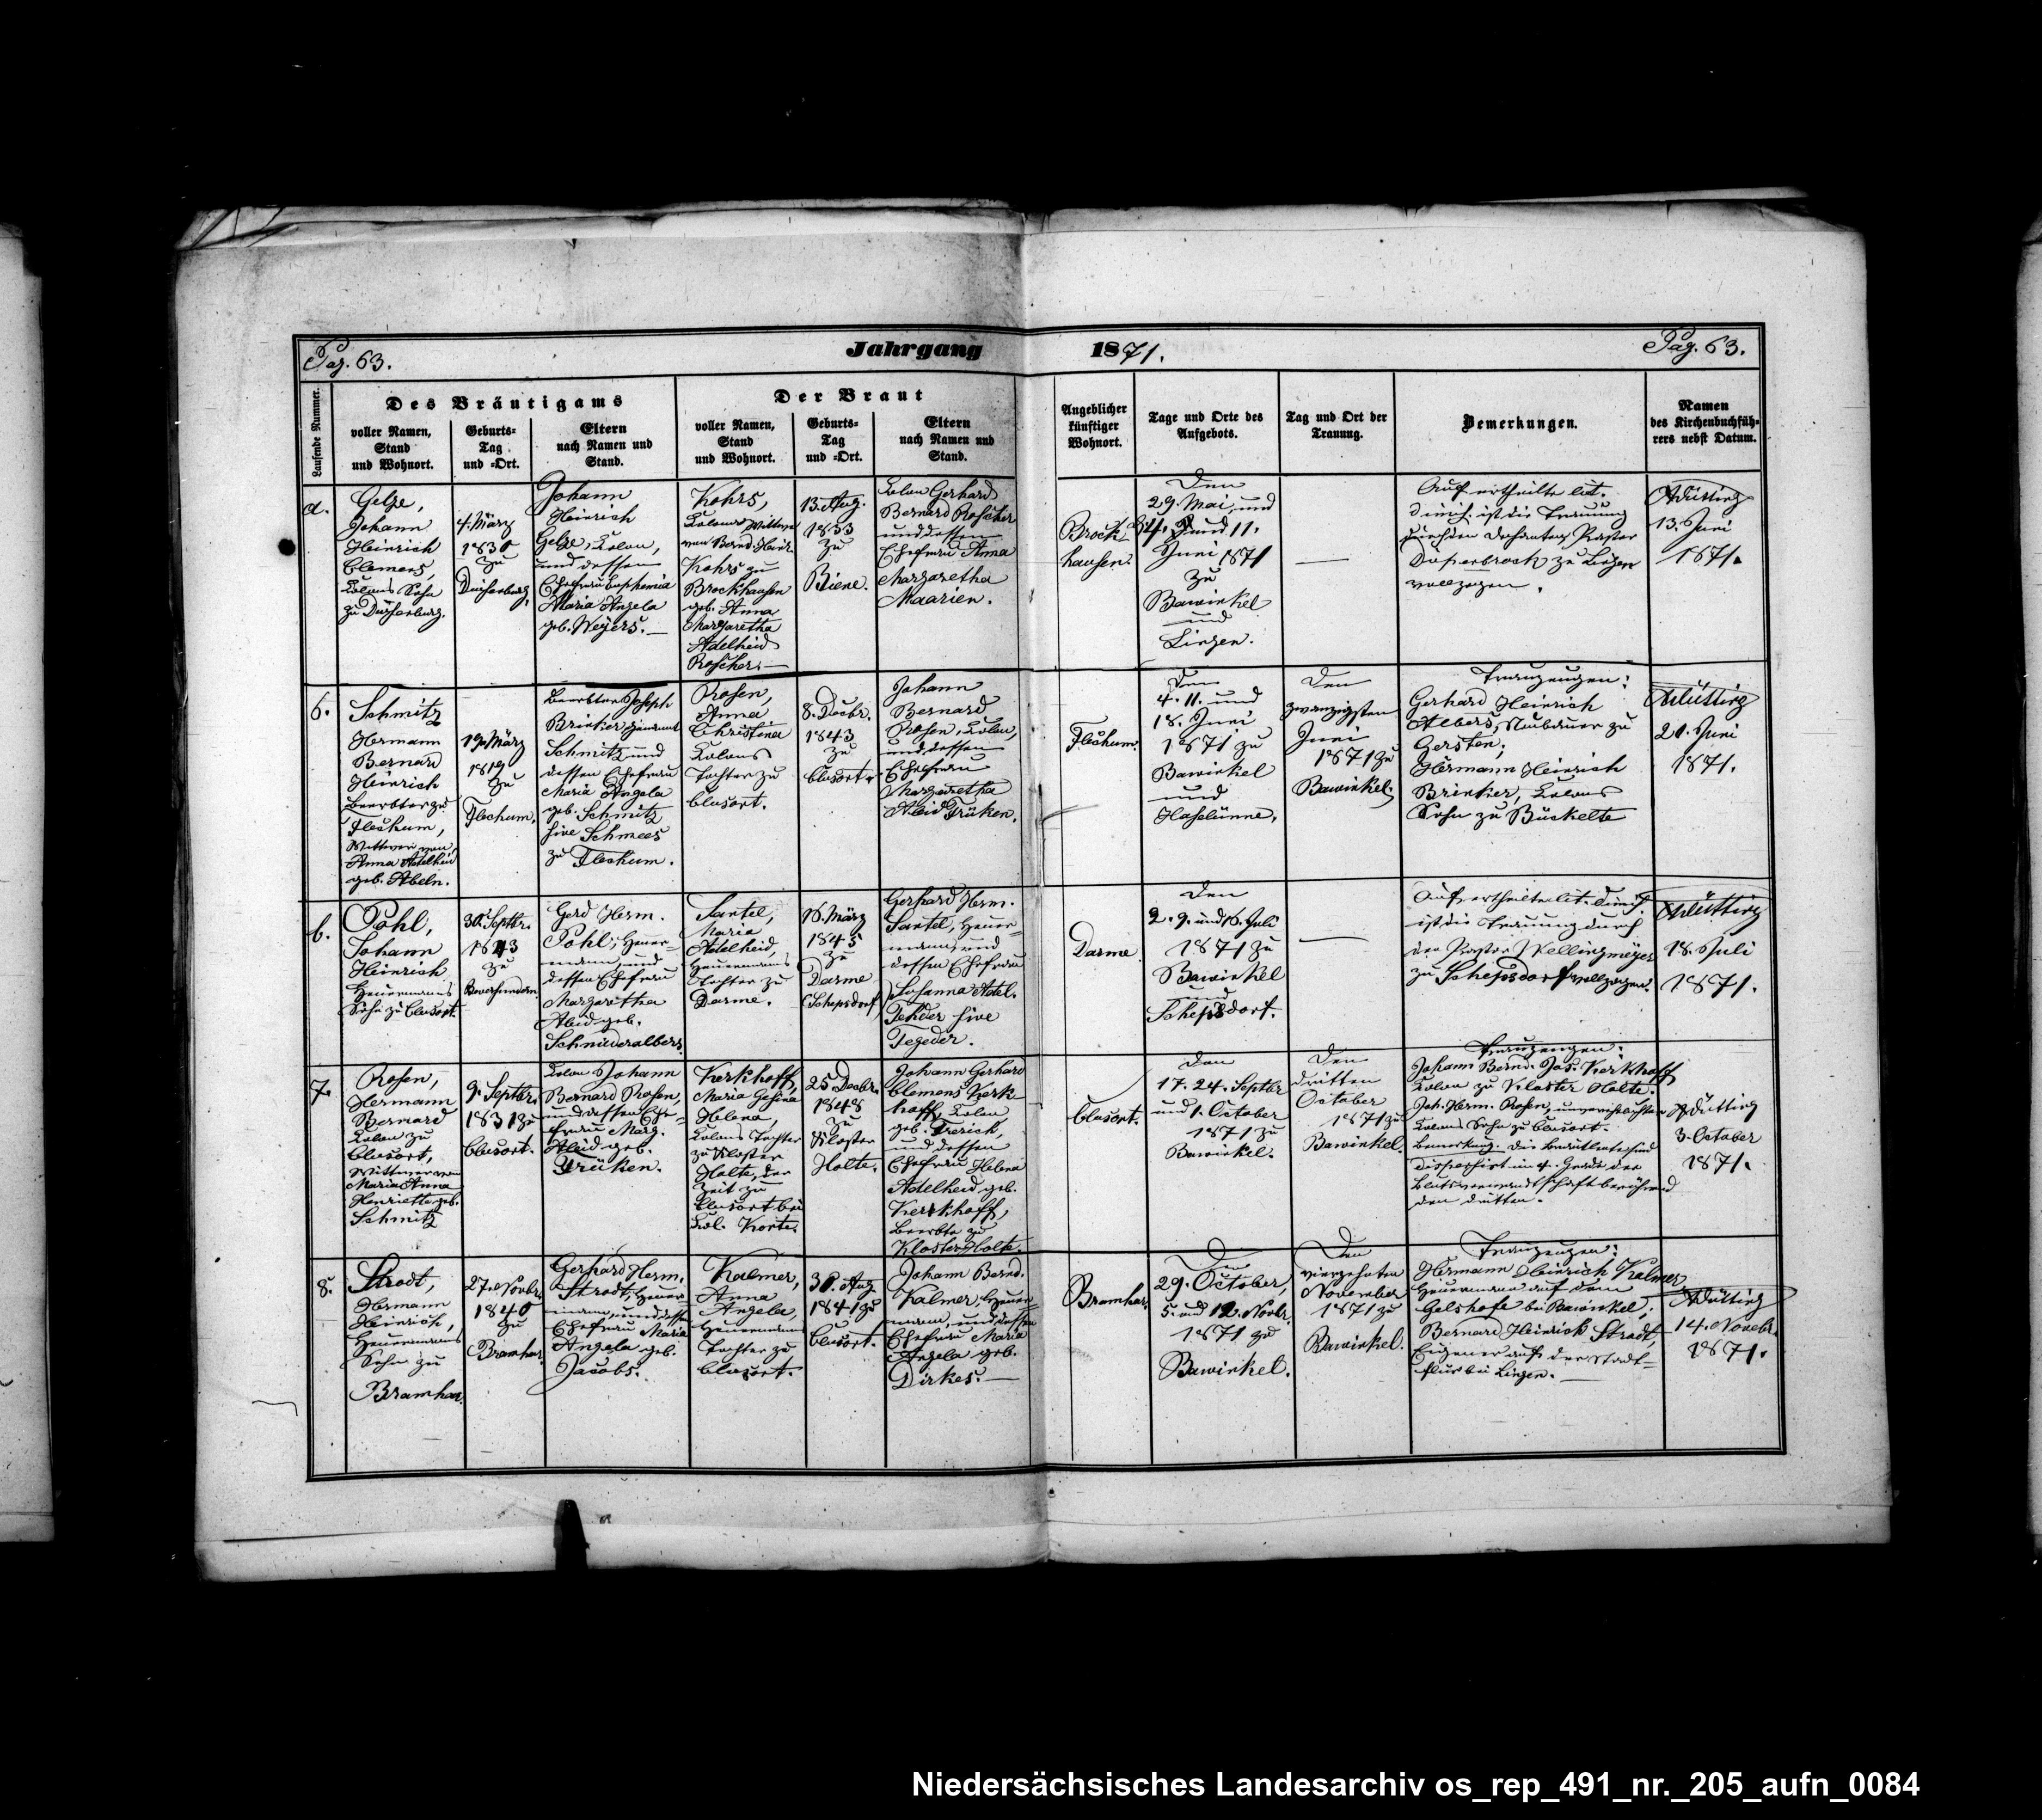 Pag. 63.
Jahrgang 1871.
Pag. 63.
Laufende Nummer.
Des Bräutigams
voller Namen,
Stand
und Wohnort.
Geburts-
Tag
und =Ort.
Eltern
nach Namen und
Stand.
Der Braut
voller Namen,
Stand
und Wohnort.
Geburts-
Tag
und =Ort.
Eltern
nach Namen und
Stand.
Angeblicher
künftiger
Wohnort.
Tage und Orte des
Aufgebots.
Tag und Ort der
Trauung.
Bemerkungen.
Namen
des Kirchenbuchfüh-
rers nebst Datum.
a.
Gelze,
Johann
Heinrich
Clemens,
Colons Sohn
zu
4. März
zu
Johann
Heinrich
Gelze, Colon,
und dessen
Ehefrau Euphemia
Maria Angela
geb. Weyers.
Kohrs,
Colons Wittwe
von Bernd Heinr.
Kohrs zu
Brockhausen
geb. Anna
Margaretha
Adelheid
Roscher.
13. Aug.
1833
zu
Biene.
Colon Gerhard
Bernard Roscher
und dessen
Ehefrau Anna
Margaretha
Maarien.
Brock-
hausen.
Den
29. Mai und
4. und 11.
Juni 1871
zu
Bawinkel
und
Lingen.
Auf ertheilte lit.
dimiss. ist die Trauung
durch den Pastor
zu Lingen
vollzogen.
13. Juni
1871.
6.
Schmitz
Hermann
Bernard
Heinrich
Beerbter zu
Flechum,
Wittwer von
Anna Adelheid
geb. Abeln.
19. März
1819
zu
Flechum.
Beerbter Joseph
Brinker genannt
Schmitz und
dessen Ehefrau
Maria Angela
geb. Schmitz
sive Schmees
zu Flechum.
Rosen,
Anna
Christina
Colons
Tochter zu
Clusort.
8. Decbr.
1843
zu
Clusort.
Johann
Bernard
Rosen, Colon,
und dessen
Ehefrau
Margaretha
Aleid Trüken.
Flechum.
Den
4. 11. und
18. Juni
1871 zu
Bawinkel
und
Haselünne.
Den
zwanzigsten
Juni
1871 zu
Bawinkel.
Trauzeugen:
Gerhard Heinrich
Albers, Neubauer zu
Gersten;
Hermann Heinrich
Brinker, Colons
Sohn zu Bückelte
21. Juni
1871.
b.
Pohl,
Johann
Heinrich
Heuermanns
Sohn zu Clusort.
30. Septbr.
1843
zu
Gerd Herm.
Pohl, Heuer-
mann, und
dessen Ehefrau
Margaretha
Aleid geb.
Schniederalbers.
Santel,
Maria
Adelheid,
Heuermanns
Tochter zu
Darme.
16. März
1845
zu
Darme
(Schepsdorf)
Gerhard Herm.
Santel, Heuer-
mann, und
dessen Ehefrau
Susanna Adel.
Tehder sive
Tegeder.
Darme.
Den
2. 9. und 16. Juli
1871 zu
Bawinkel
und
Schepsdorf.
Auf ertheilte lit. dimiss.
ist die Trauung durch
den Pastor Wellingmeyer
zu Schepsdorf vollzogen.
18. Juli
1871.
7.
Rosen,
Hermann
Bernard
Colon zu
Clusort,
Wittwer von
Maria Anna
Henriette geb.
Schmitz
9. Septbr.
1831 zu
Clusort.
Colon Johann
Bernard Rosen,
und dessen Ehe-
frau Marg.
Aleid geb.
Trüken.
Kerkhoff,
Maria Gesina
Helena,
Colons Tochter
zu Kloster
Holte, der
Zeit zu
Clusort bei
Col. Korte.
25. Decbr.
1848
zu
Kloster
Holte.
Johann Gerhard
Clemens Kerk-
hoff, Colon
geb. Frerich,
und dessen
Ehefrau Helena
Adelheid geb.
Kerkhoff,
Beerbte zu
Kloster Holte.
Clusort.
Den
17. 24. Septbr
und 1. October
1871 zu
Bawinkel.
Den
dritten
October
1871 zu
Bawinkel.
Trauzeugen:
Johann Bernd. Jos. Kerkhoff
Colon zu Kloster Holte.
Joh. Herm. Rosen, unverheirathet
Colons Sohn zu Clusort.
Bemerkung. Die Brautleute sind
dispensirt im 4. Grade der
Blutsverwandtschaft berührend
den dritten.
3. October
1871.
8.
Strodt,
Hermann
Heinrich,
Heuermanns
Sohn zu
Bramhar.
27. Novbr.
1840
zu
Bramhar.
Gerhard Herm.
Strodt, Heuer-
mann, und dessen
Ehefrau Maria
Angela geb.
Jacobs.
Kalmer,
Anna
Angela,
Heuermanns
Tochter zu
Clusort.
30. Aug.
1841 zu
Clusort.
Johann Bernd.
Kalmer, Heuer-
mann, und dessen
Ehefrau Maria
Angela geb.
Dirkes.
Bramhar.
Den
29. October,
5. und 12. Novbr.
1871 zu
Bawinkel.
Den
vierzehnten
November
1871 zu
Bawinkel.
Trauzeugen:
Hermann Heinrich Kalmer
Heuermann auf dem
Gelshofe bei Bawinkel;
Bernard Heinrich Strodt,
Eigener auf der Stadt-
flur bei Lingen.
14. Novebr.
1871.
Niedersächsisches Landesarchiv os_rep_491_nr._205_aufn_0084